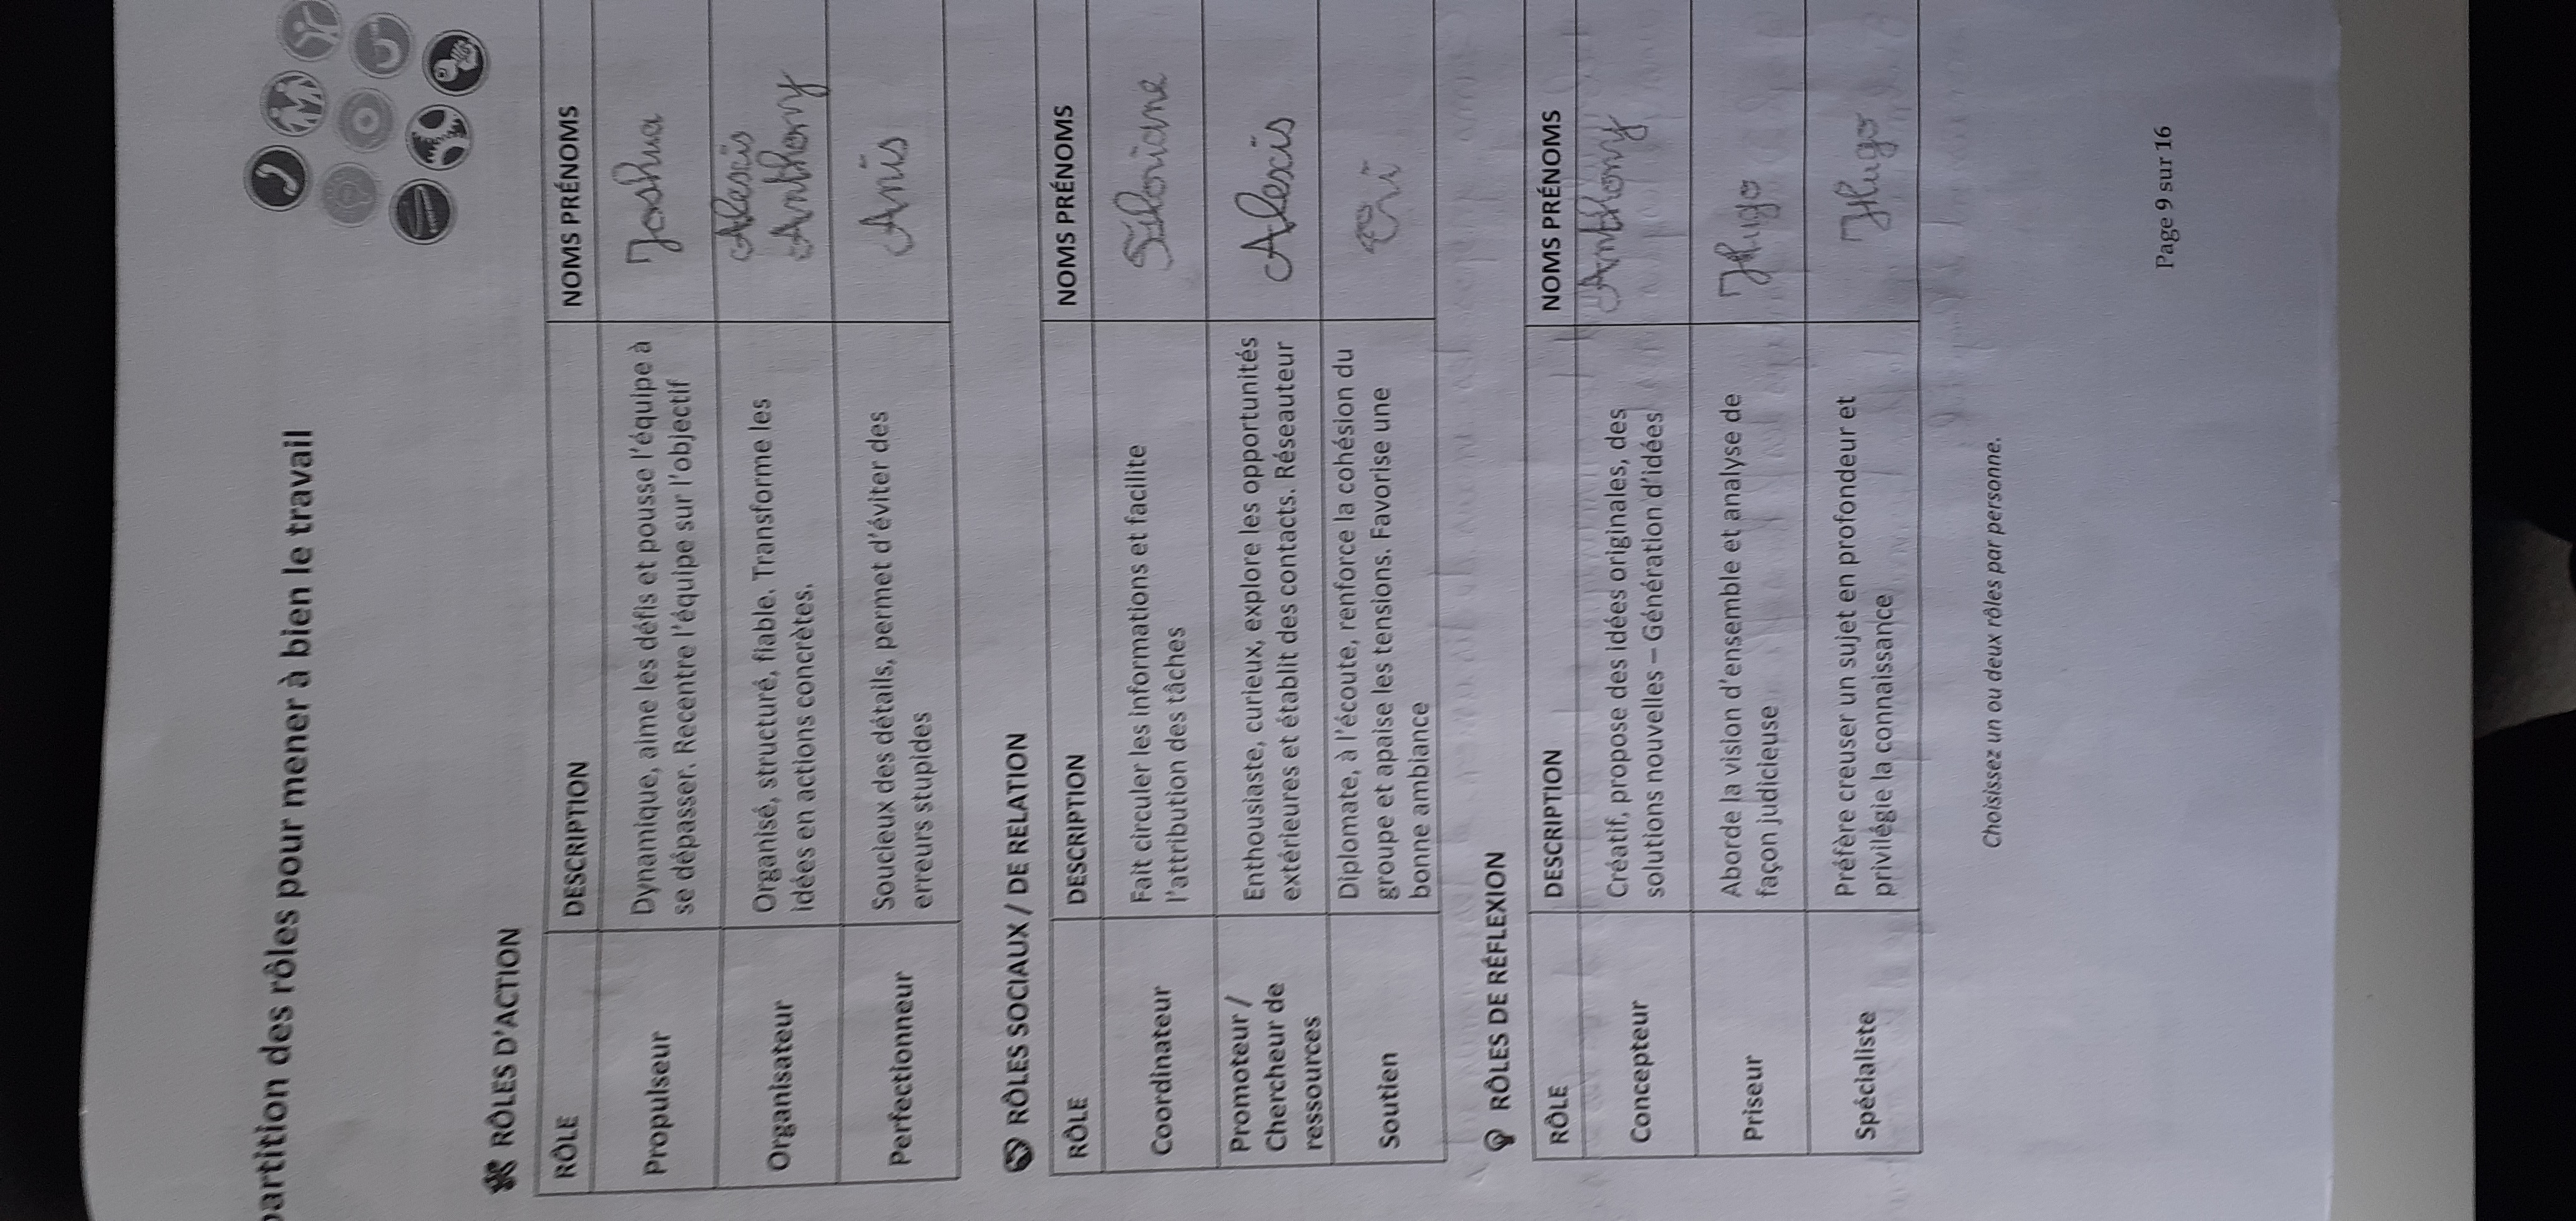 partition des rôles pour mener à bien le travail
RÔLES D'ACTION
RÔLE DESCRIPTION NOMS PRÉNOMS
Propulseur
Dynamique, aime les défis et pousse l'équipe à
se dépasser. Recentre l'équipe sur l'objectif
Joshua
Organisateur
Organisé, structuré, fiable. Transforme les
idées en actions concrètes.
Alexis
Anthony
Perfectionneur
Soucieux des détails, permet d'éviter des
erreurs stupides
Anis
RÔLES SOCIAUX / DE RELATION
RÔLE DESCRIPTION NOMS PRÉNOMS
Coordinateur
Fait circuler les informations et facilite
l'attribution des tâches
Floriane
Promoteur /
Chercheur de
ressources
Enthousiaste, curieux, explore les opportunités
extérieures et établit des contacts. Réseauteur
Alexis
Soutien
Diplomate, à l'écoute, renforce la cohésion du
groupe et apaise les tensions. Favorise une
bonne ambiance
RÔLES DE RÉFLEXION
RÔLE DESCRIPTION NOMS PRÉNOMS
Concepteur
Créatif, propose des idées originales, des
solutions nouvelles – Génération d'idées
Anthony
Priseur
Aborde la vision d'ensemble et analyse de
façon judicieuse
Hugo
Spécialiste
Préfère creuser un sujet en profondeur et
privilégie la connaissance
Hugo
Choisissez un ou deux rôles par personne.
Page 9 sur 16